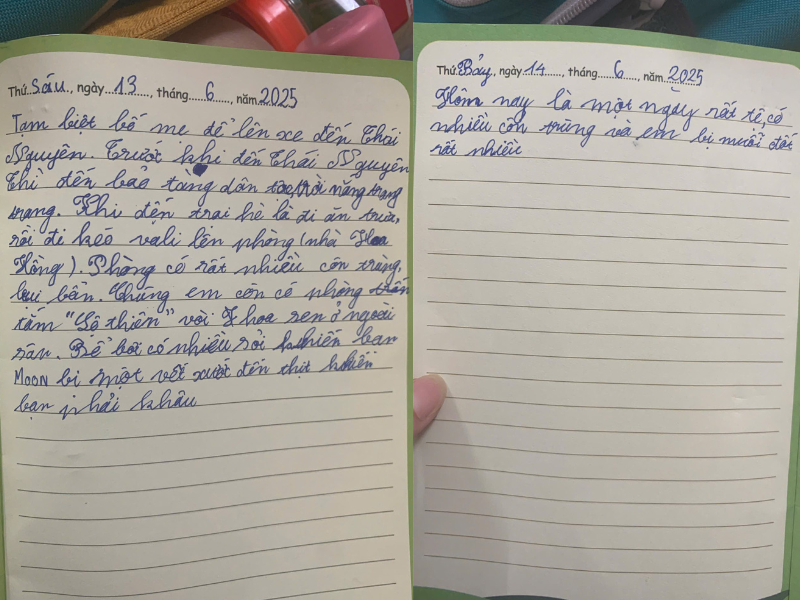 Thứ Sáu, ngày 13, tháng 6, năm 2025
Tạm biệt bố mẹ để lên xe đến Thái
Nguyên. Trước khi đến Thái Nguyên
thì đến bảo tàng dân tộc, trời nắng trang
trang. Khi đến trại hè là đi ăn trưa,
rồi đi kéo vali lên phòng (nhà Hoa
Hồng). Phòng có rất nhiều côn trùng,
bụi bẩn. Chúng em còn có phòng
tắm "Lộ thiên" với 1 hoa sen ở ngoài
sân. Bể bơi có nhiều rồi khiến bạn
MOON bị một vết xước đến thịt khiến
bạn phải khâu
Thứ Bảy, ngày 14, tháng 6, năm 2025
Hôm nay là một ngày rất tệ, có
nhiều côn trùng và em bị muỗi đốt
rất nhiều